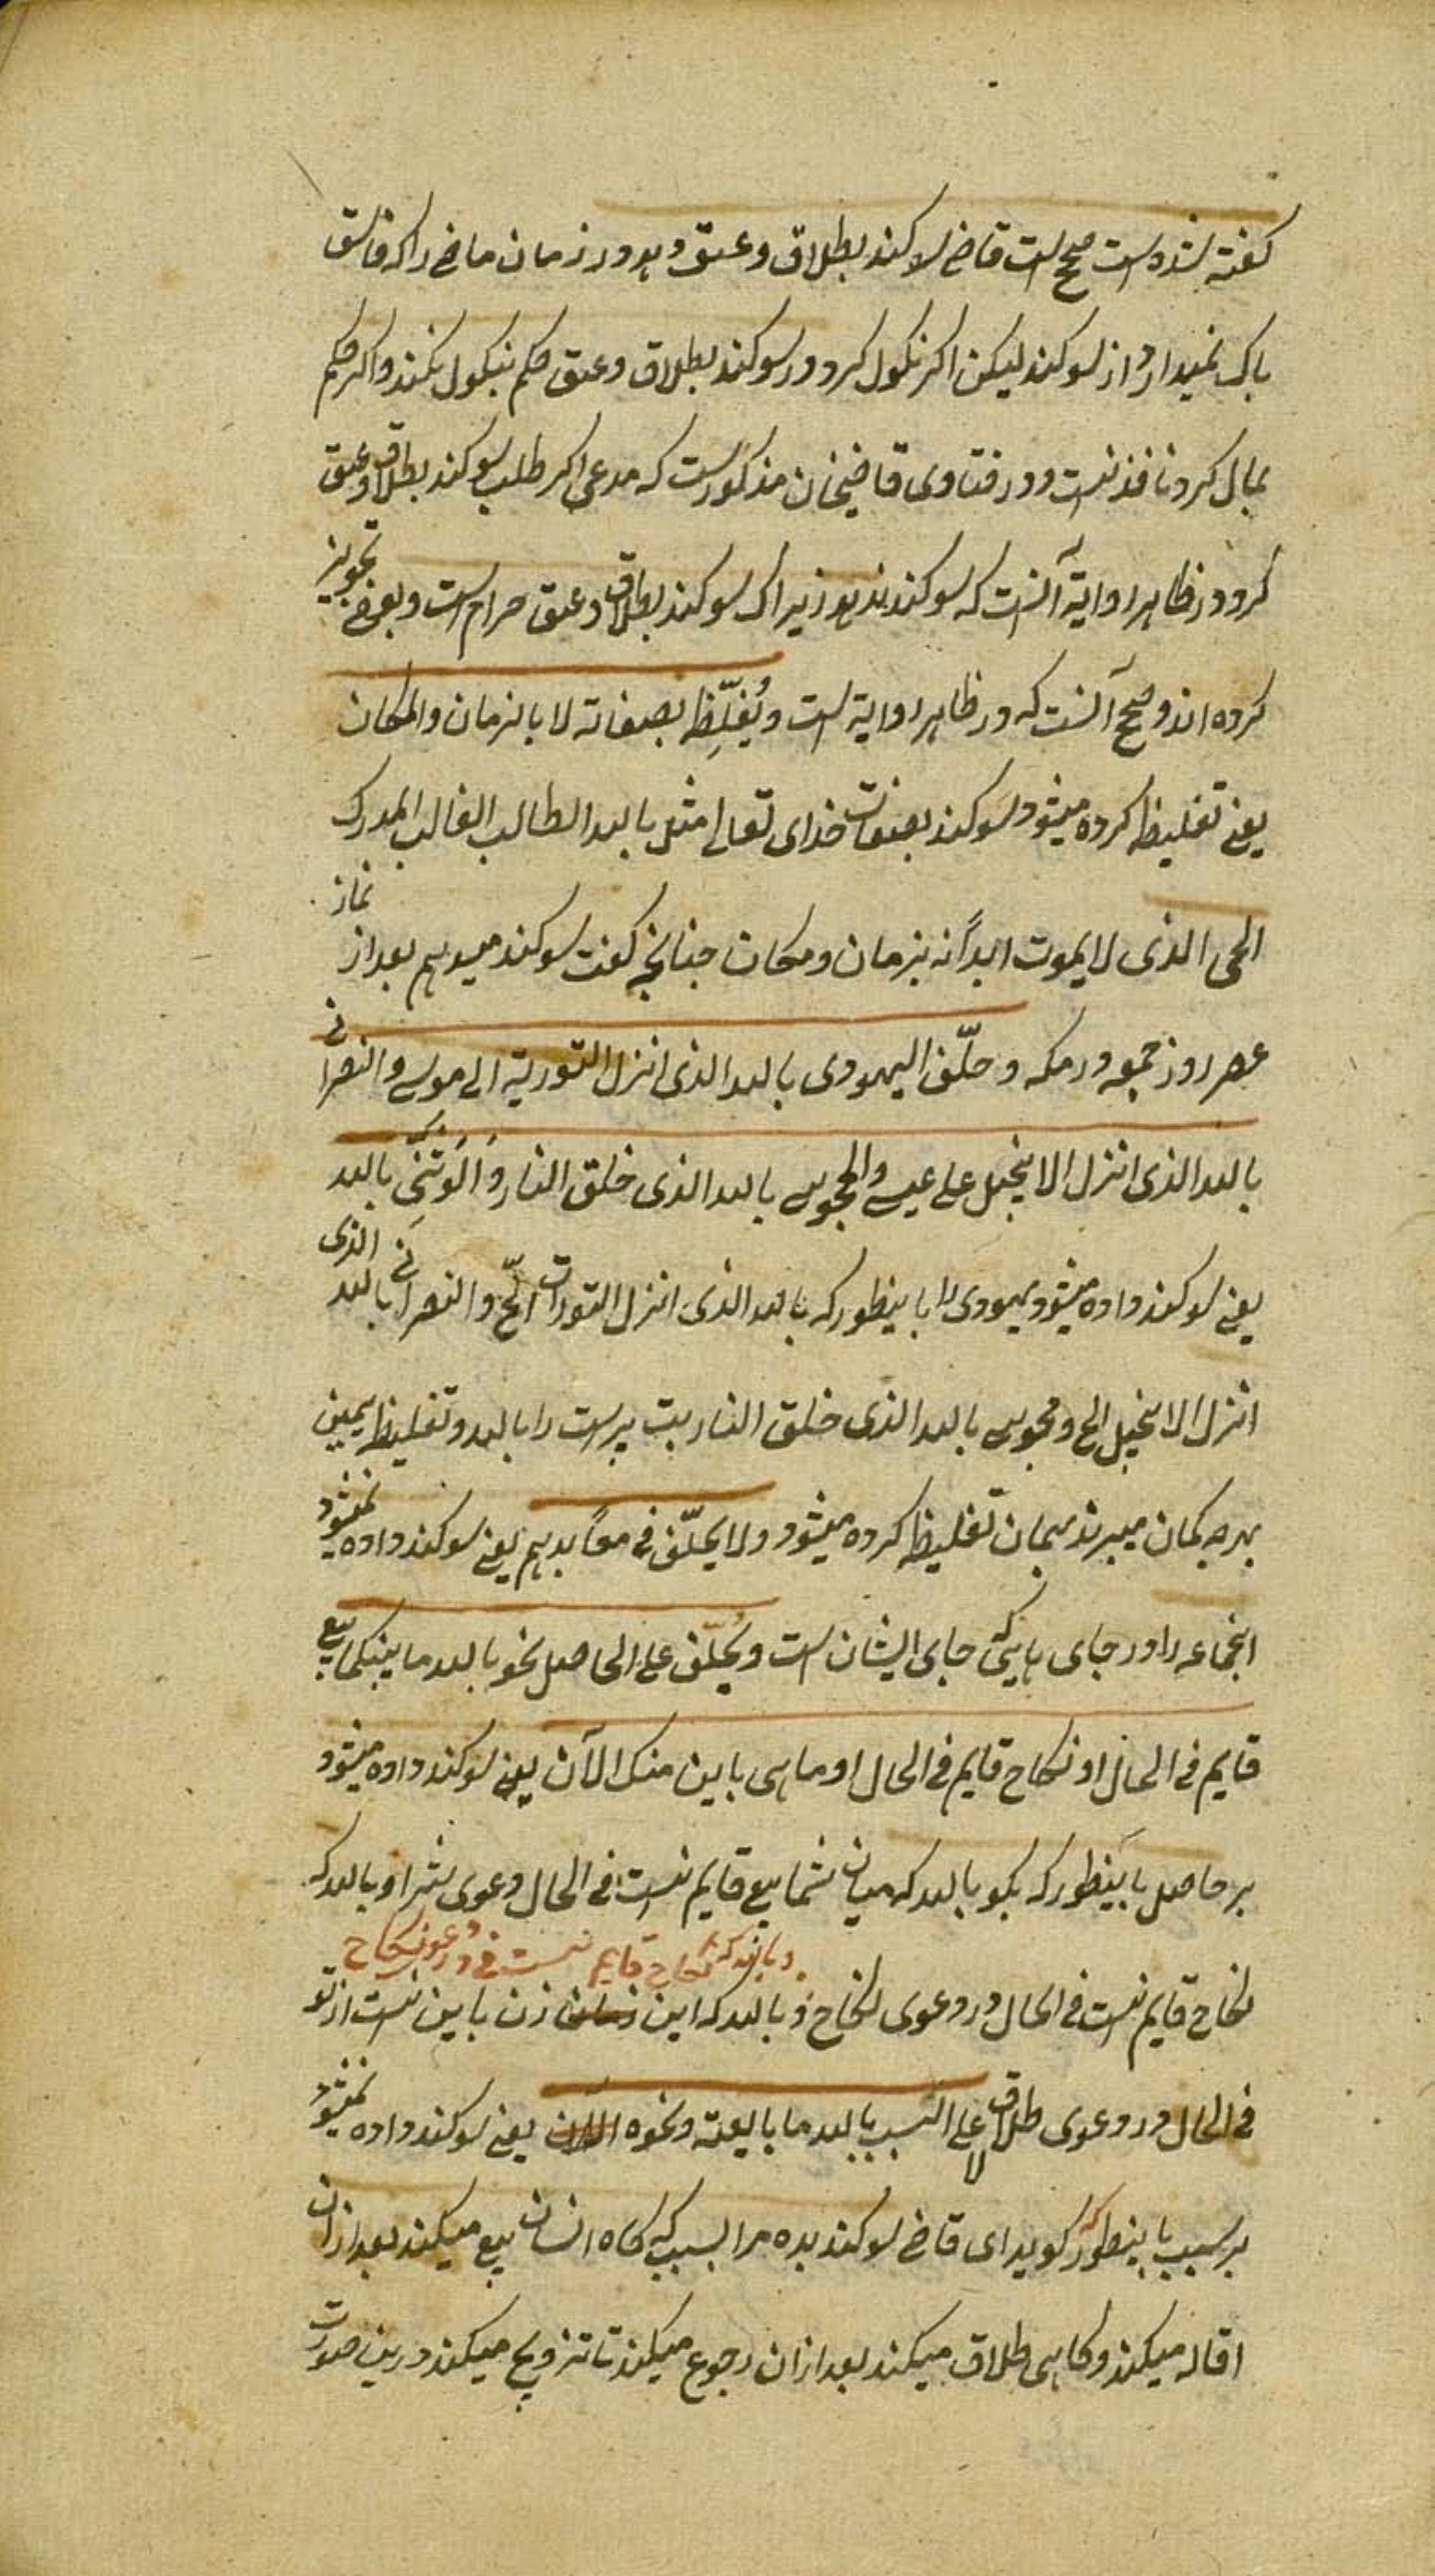 گفته شده است صحیح است قاضی سوکند بطلاق و عتق دهد در زمان ما خ را که فاسق
باک نمیدارد از سوکند لیکن اکر نکول کرد در سوکند بطلاق و عتق حکم بنکول نکند و اکر حکم
بمال کرد نافذ نیست و در فتاوی قاضیخان مذکورست که مدعی اکر طلب سوکند بطلاق و عتق
کرد در ظاهر روایة آنست که سوکند ندهد زیراکه سوکند بطلاق و عتق حرام است و بعضی تجویز
کرده اند و صحیح آنست که در ظاهر روایة است و یُغلّظ بصفاته لا بالزمان والمکان
یعنی تغلیظ کرده میشود سوکند بصفات خدای تعالی مثل بالله الطالب الغالب المدرک
الحی الذی لا یموت ابداً نه بزمان و مکان چنانچه کفت سوکند میدهم بعد از نماز
عصر روز جمعه در مکه و حلّف الیهودی بالله الذی انزل التوریة الی موسی والنصرانی
بالله الذی انزل الانجیل علی عیسی والمجوسی بالله الذی خلق النار والوثنی بالله
یعنی سوکند داده میشود یهودی را باینطور که بالله الذی انزل التورات الخ والنصرانی بالله الذی
انزل الانجیل الخ و مجوسی بالله الذی خلق النار بت پرست را بالله و تغلیظ یمین
بهرچه کمان میبرند بهمان تغلیظ کرده میشود ولا یحلّف فی معابدهم یعنی سوکند داده نمیشود
اینجماعه را در جای که جای ایشان است ویحلّف علی الحاصل نحو بالله ما بینکما بیع
قایم فی الحال او نکاح قایم فی الحال او ما هی باین منک الآن یعنی سوکند داده میشود
بر حاصل باینطور که بکو بالله که میان شما بیع قایم نیست فی الحال دعوی شرا و بالله که
و بالله که نکاح قایم نیست فی در دعوی نکاح
نکاح قایم نیست فی الحال در دعوی نکاح و بالله که این زن باین نیست از تو
فی الحال در دعوی طلاق لا علی السبب بالله ما بایعته و نحوه یعنی سوکند داده نمیشود
بر سبب باینطور که کوید ای قاضی سوکند بده مرا بسبب که کاه انسان بیع میکند بعد از ان
اقاله میکند و کاهی طلاق میکند بعد از ان رجوع میکند تا تزویج میکند درین صورت